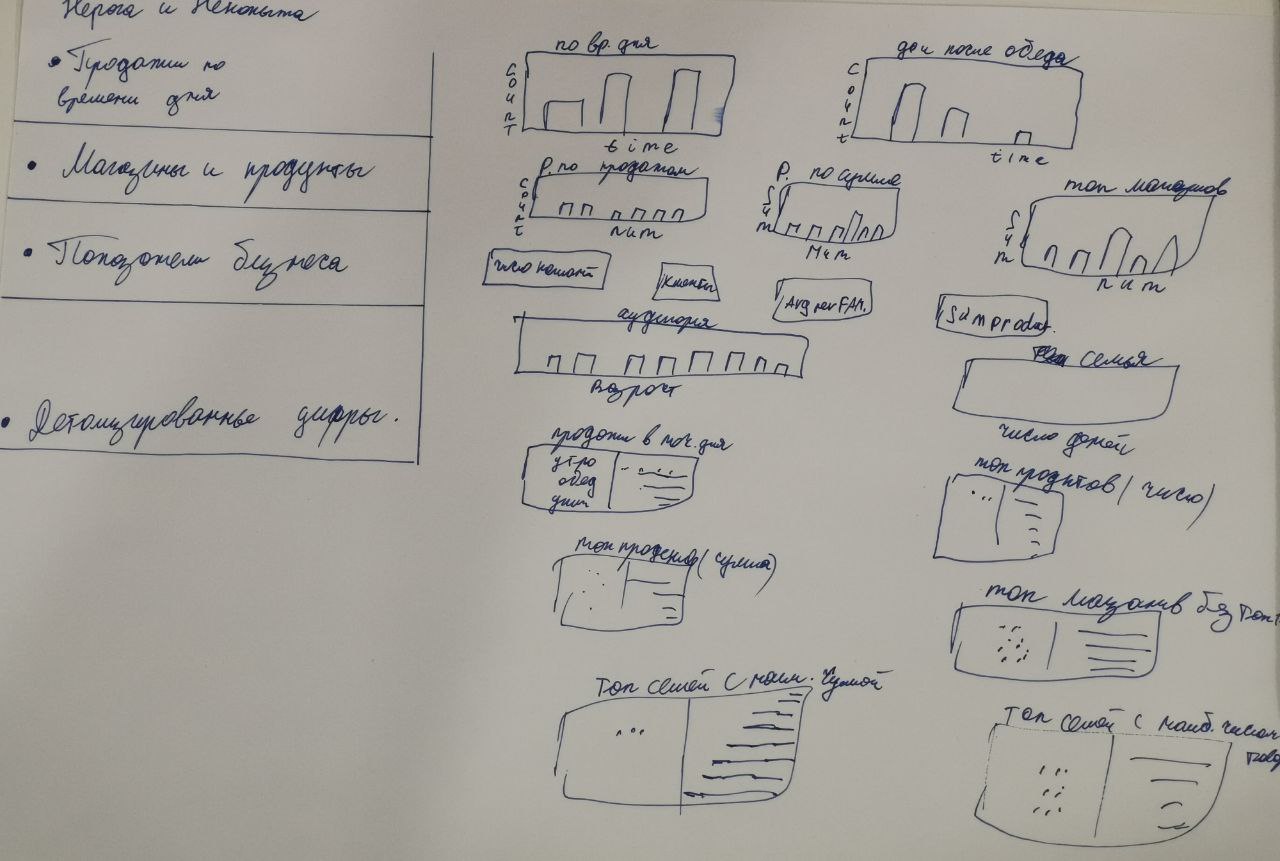 • Продажи по
времени дня
• Магазины и продукты
• Показатели бизнеса
• Детализированные цифры.
по вр. дня
count
time
до и после обеда
count
time
Р. по продажам
count
num
Р. по сумме
sum
num
топ магазинов
sum
num
число
клиенты
Avg per FAM.
Sum product.
аудитория
Возраст
семья
число детей
продажи в дня
утро
обед
топ продуктов (число)
топ (сумма)
топ без
Топ семей с наим. суммой
Топ семей с наиб. числом